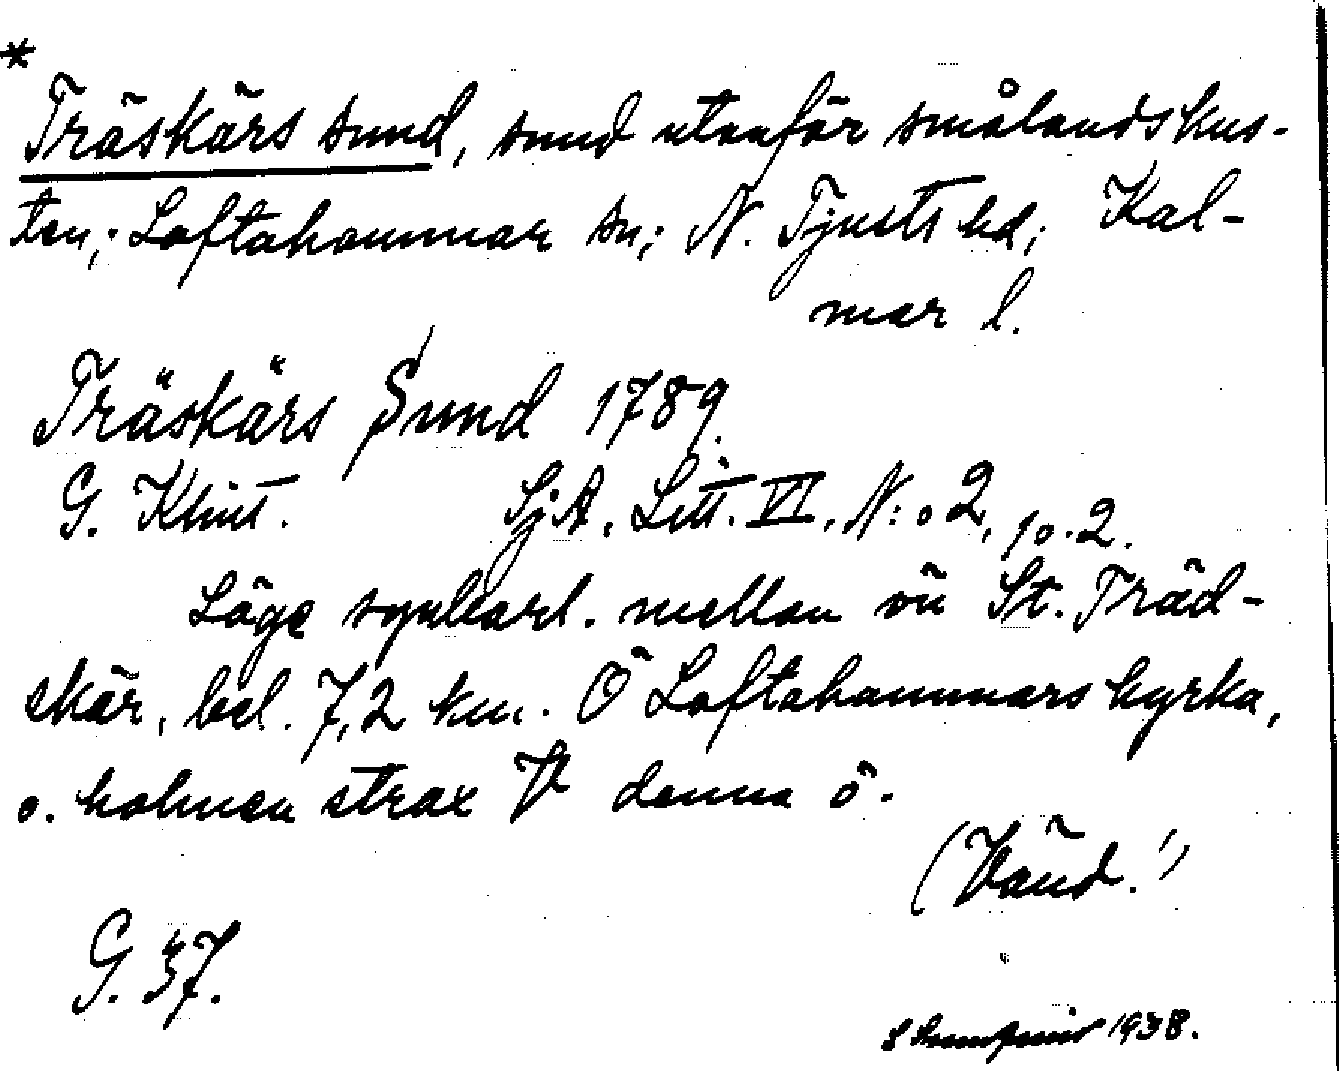 *
Träskärs sund, sund utanför smålandskus-
ten; Loftahammar sn; N. Tjusts hd; Kal-
mar l.
Träskärs Sund 1789.
G. Klint. SjA. Litt. VI. N:o 2, p. 2.
Läge synbarl. mellan ön St. Träd-
skär, bel. 7,2 km. Ö Loftahammars kyrka,
o. holmen strax V denna ö.
(Vänd!)
G. 37.
1938.